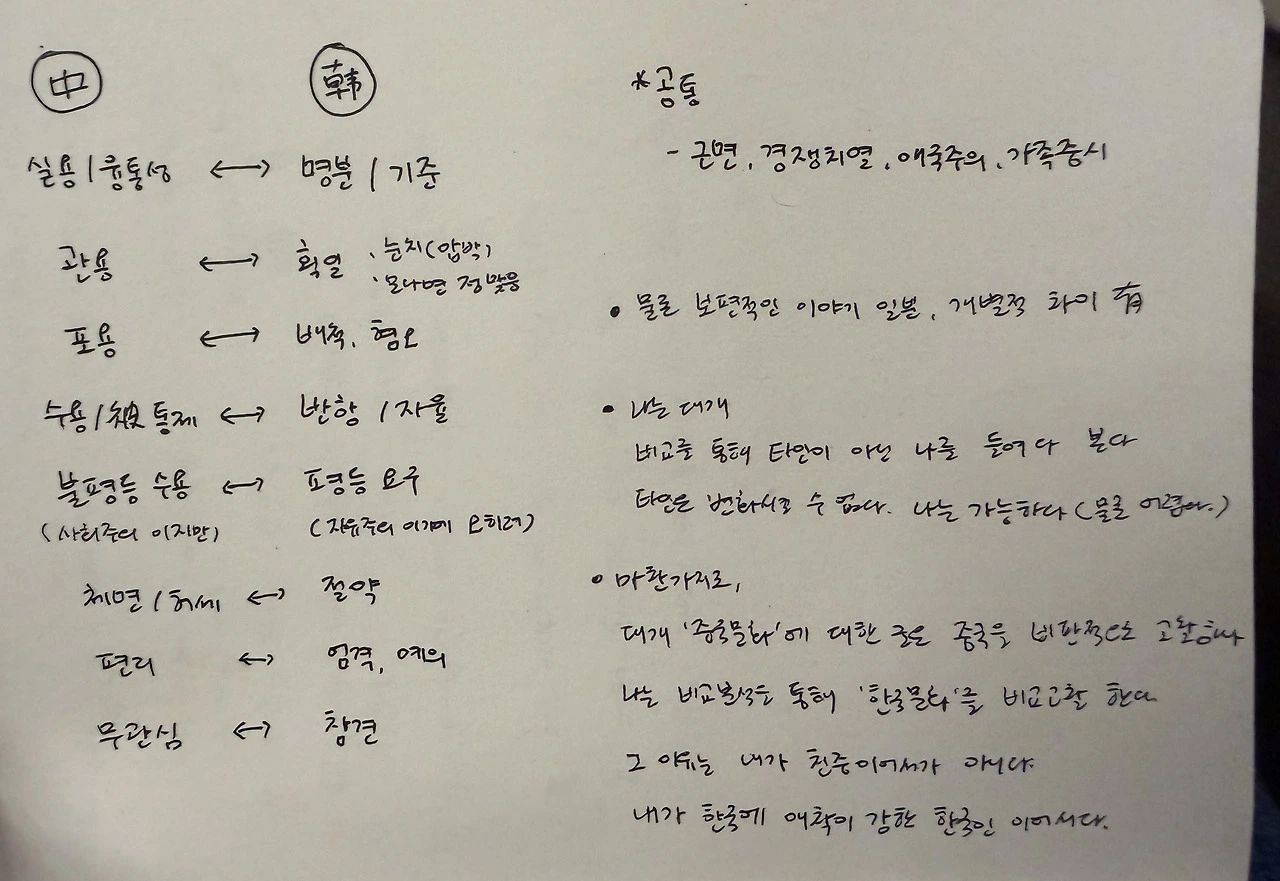 中 韓
실용 / 융통성 ↔ 명분 / 기준
관용 ↔ 획일 · 눈치(압박)
· 모나면 정 맞음
포용 ↔ 배척, 혐오
수용 / 被통제 ↔ 반항 / 자율
불평등 수용 ↔ 평등 요구
(사회주의 이지만) (자유주의 이기에 오히려)
체면 / 허세 ↔ 절약
편리 ↔ 엄격, 예의
무관심 ↔ 참견
* 공통
- 근면, 경쟁치열, 애국주의, 가족중시
• 물론 보편적인 이야기 일뿐, 개별적 차이 有
• 나는 대개
비교를 통해 타인이 아닌 나를 들여다 본다
타인은 변화시킬 수 없다. 나는 가능하다 (물론 어렵다.)
• 마찬가지로,
대개 '중국문화'에 대한 글은 중국을 비판적으로 고찰하나
나는 비교분석을 통해 '한국문화'를 비교고찰 한다.
그 이유는 내가 친중이어서가 아니다.
내가 한국에 애착이 강한 한국인 이어서다.